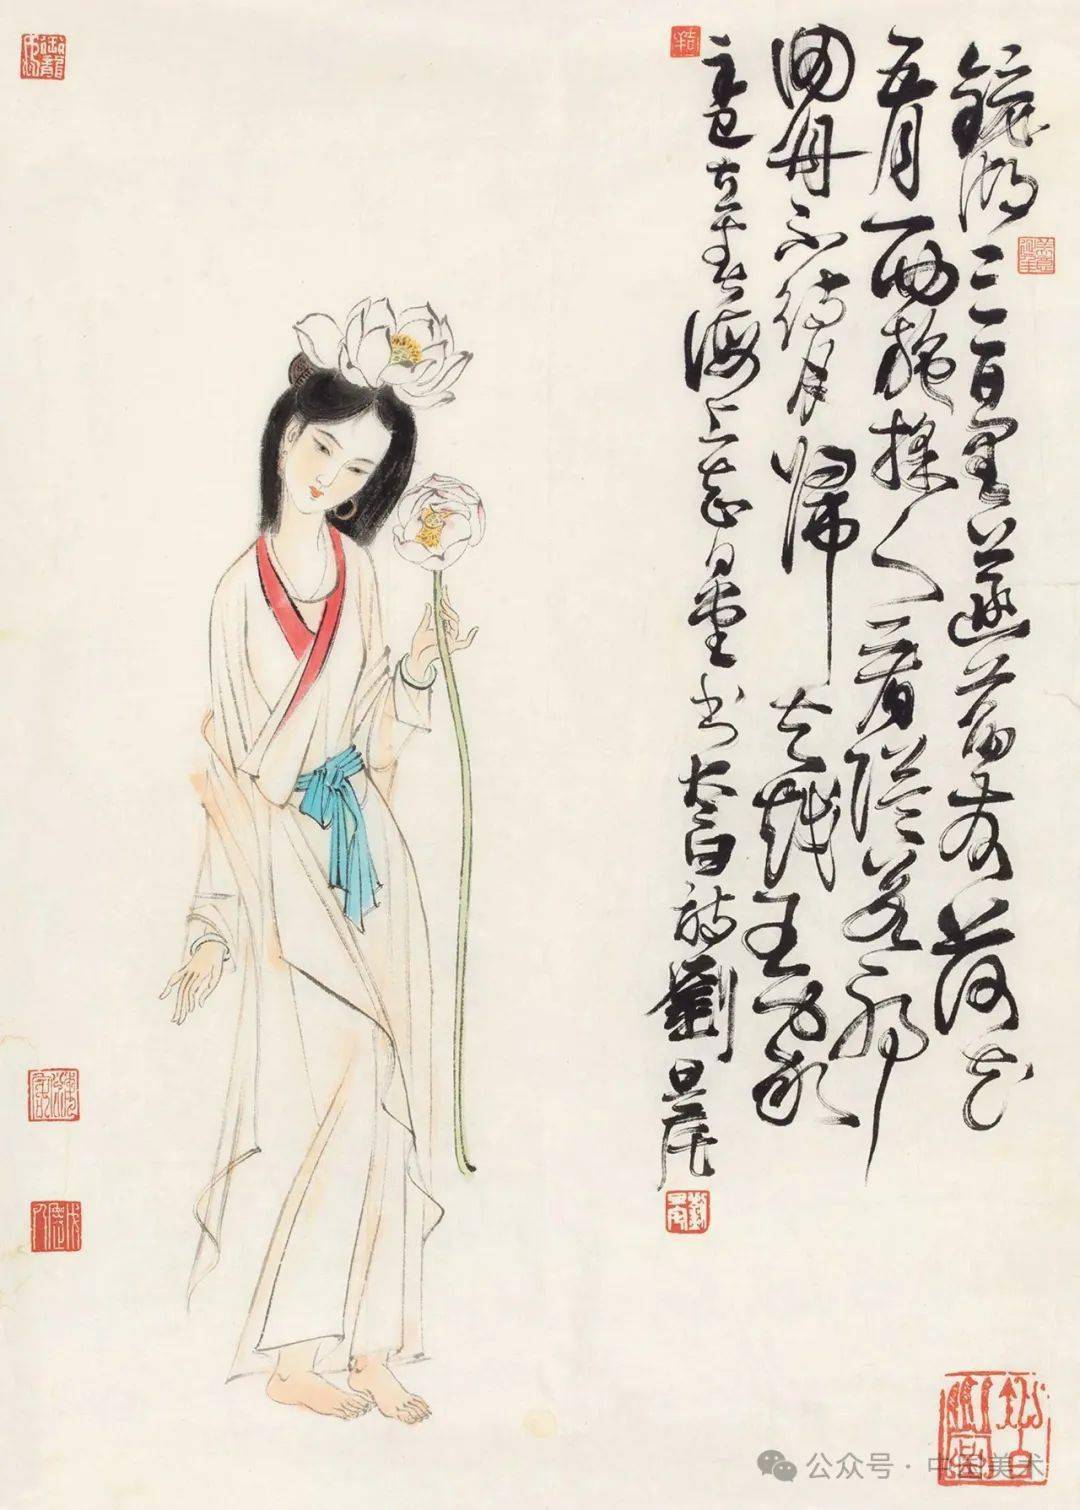 鏡湖三百里菡萏發荷花
五月西施採人看隘若耶
回舟不待月歸去越王家
立春海上書太白詩劉旦宅
公众号 · 中国美术